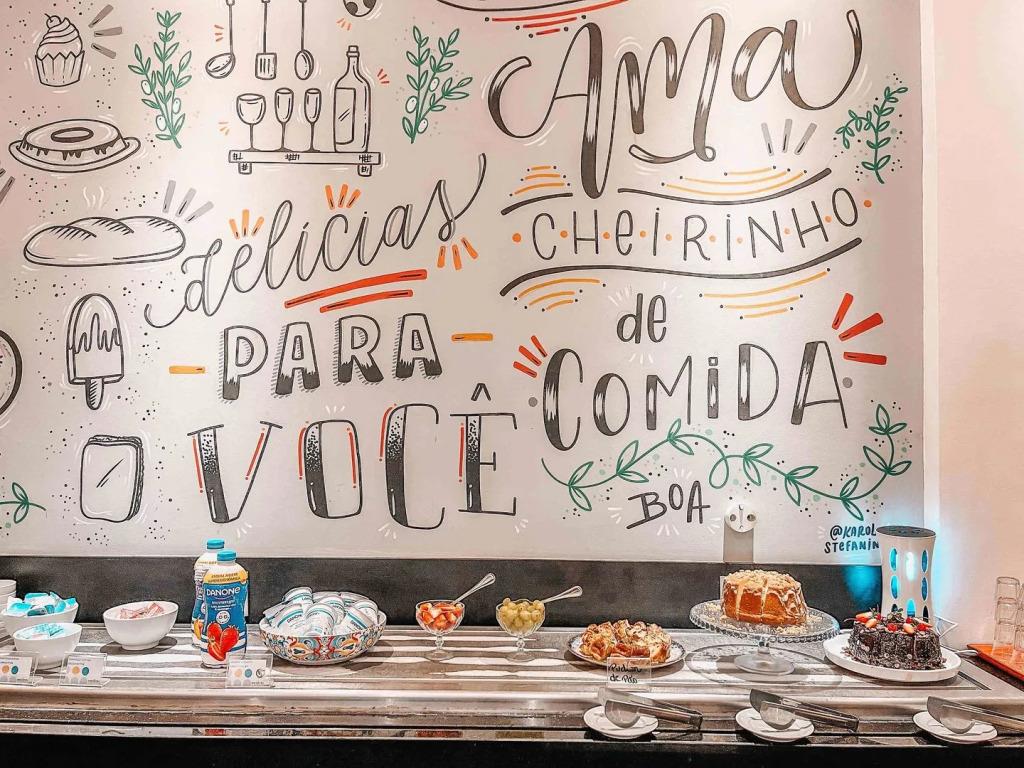 delícias
PARA
VOCÊ
Ama
CHEIRINHO
de
COMIDA
BOA
@KAROL
STEFANIN
DANONE
Pudim
de Pão